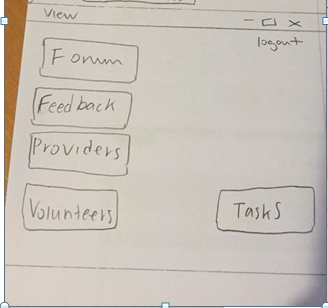 View
logout
Forum
Feedback
Providers
Volunteers
Tasks